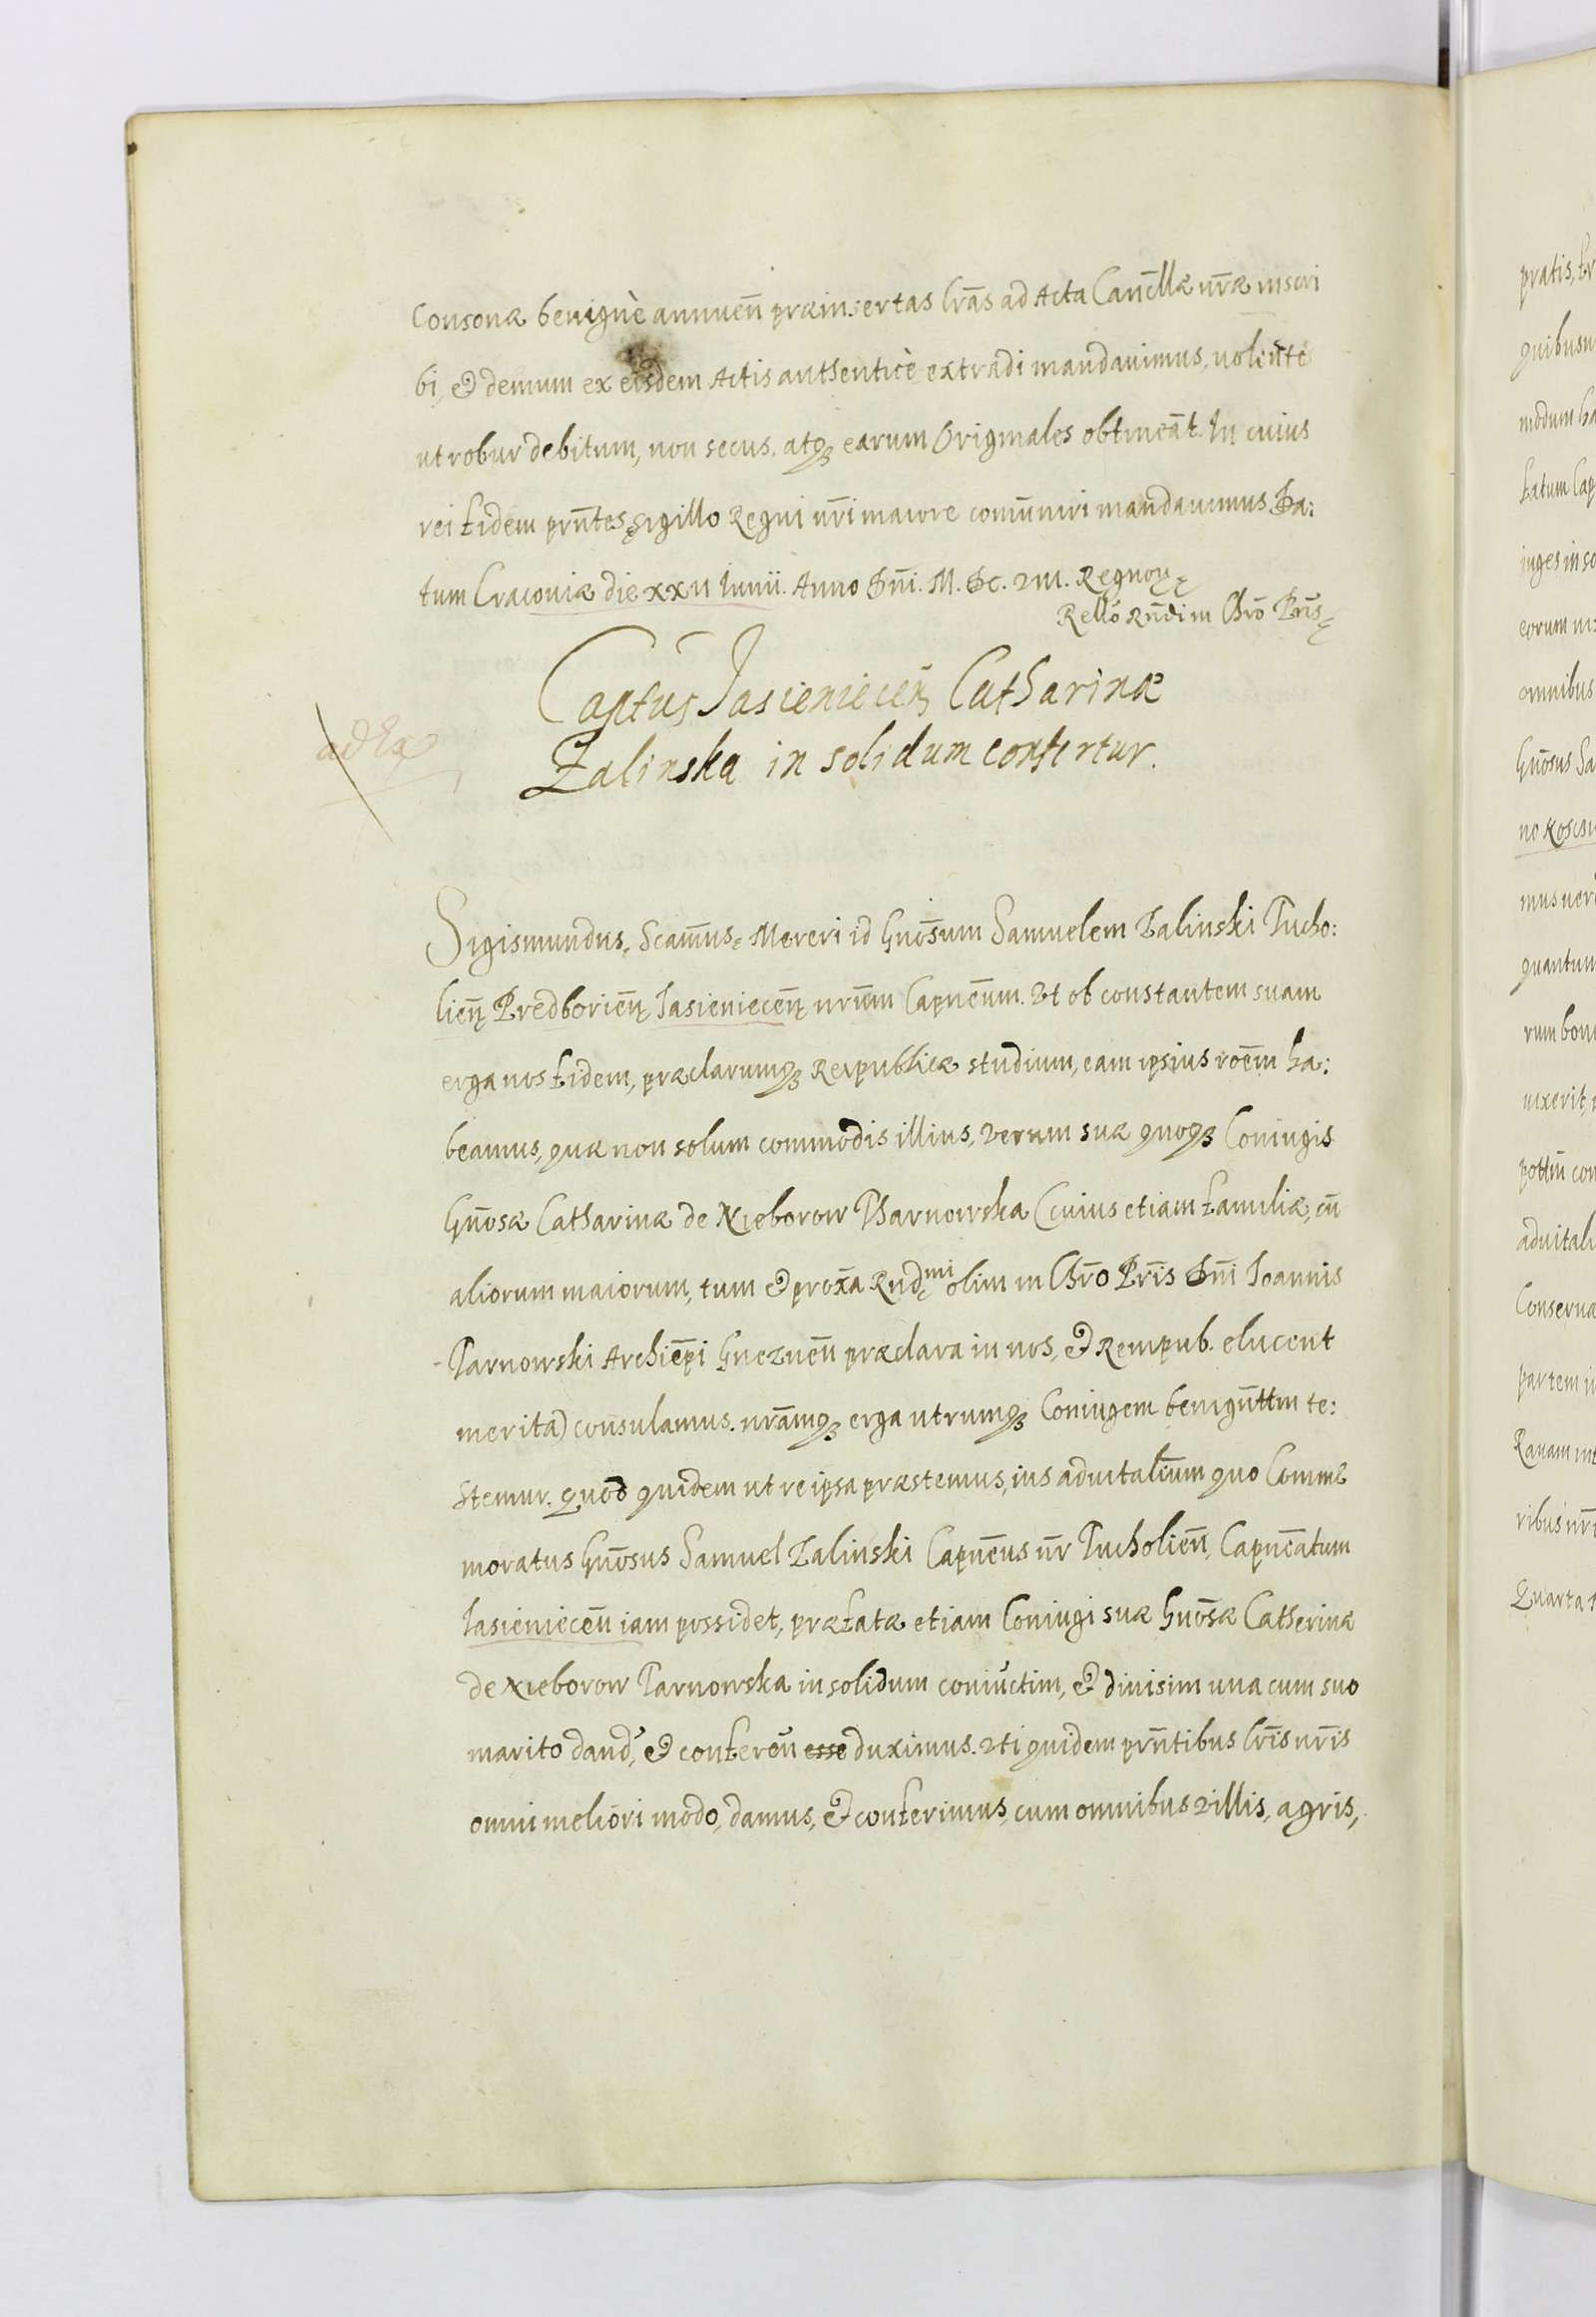 Consonæ benignè annuen̄ præinsertas l̄ras ad Acta Can̄cllæ n̄ræ inscri
bi, & demum ex eisdem Actis authenticè extradi mandauimus, uolentes
ut robur debitum, non secus, atqꝫ earum Originales obtineāt. In cuius
rei fidem pr̄ntes, sigillo Regni n̄ri maiore com̄uniri mandauimus Da:
tum Cracouiæ die XXII Iunii. Anno Dn̄i. M. DC.
Regnoꝝ
Rello Rn̄di in Chr̄o Pr̄is
Captus Jasieniecen̄ Catharinæ
Zalinska in solidum confertur.
ad Ex
Sigismundus, Scam̄us, Mereri id Gn̄osum Samuelem Zalinski Tucho:
lien̄, Predborien̄, Iasieniecen̄, nr̄um Capnēum. Vt ob constantem suam
erga nos fidem, præclarumqꝫ Reipublicæ studium, eam ipsius roēm ha:
beamus, quæ non solum commodis illius, verum suæ quoqꝫ Coniugis
Gn̄osæ Catharinæ de Nieborow Tharnowska (cuius etiam familiæ, cū
aliorum maiorum, tum & prox̄a Rnd^mi olim in Chr̄o Pr̄is Dn̄i Ioannis
Tarnowski Archiēpi Gneznen̄ præclara in nos, & Rempub. elucent
merita) consulamus. nr̄amqꝫ erga utrumqꝫ Coniugem benign̄ttm te:
stemur. Quod quidem ut re ipsa præstemus, ius aduitalium quo Comme
moratus Gn̄osus Samuel Zalinski Capnēus n̄r Tucholien̄, Capnēatum
Iasieniecen̄ iam possidet, præfatæ etiam Coniugi suæ Gn̄osæ Catherinæ
de Nieborow Tarnowska in solidum coniūctim, & diuisim una cum suo
marito dand, & conferen̄ esse duximus. Vti quidem pr̄ntibus l̄ris n̄ris
omni meliori modo, damus, & conferimus, cum omnibus Villis, agris,